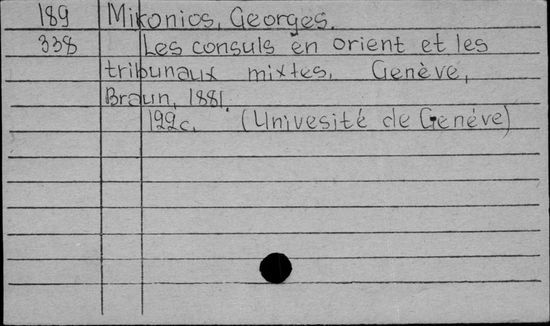 189 Mikonios, Georges.
338 Les consuls en orient et les
tribunaux mixtes. Genève,
Braun, 1881.
122c. (Univesité de Genéve)